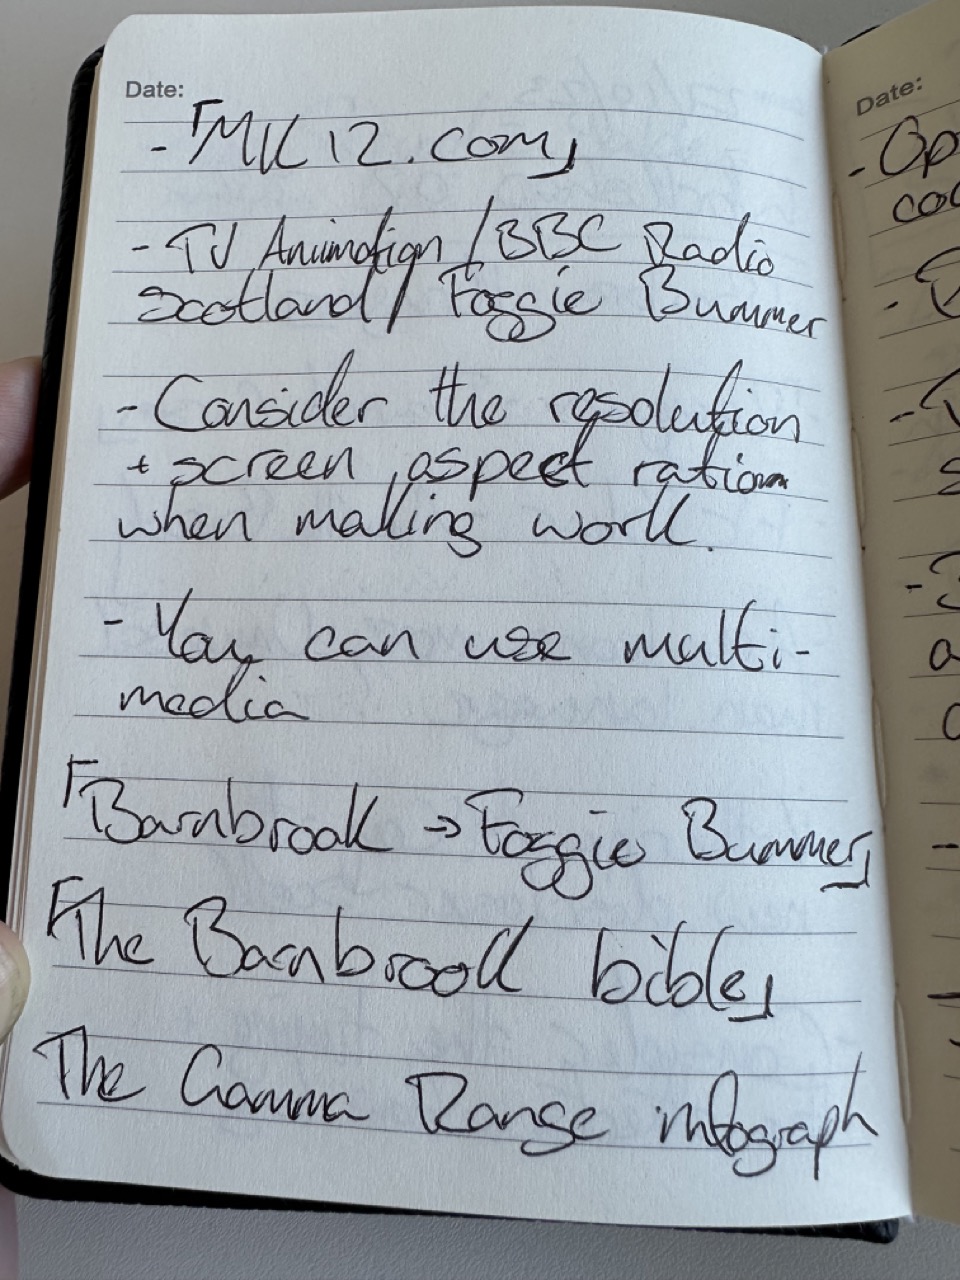 Date:
- 「MK12.com」
- TV Animation / BBC Radio
Scotland / Foggie Bummer
- Consider the resolution
+ screen aspect ration
when making work.
- You can use multi-
media
「Barnbrook → Foggie Bummer」
「The Barnbrook bible」
The Gamma Range infograph
Date:
- Op